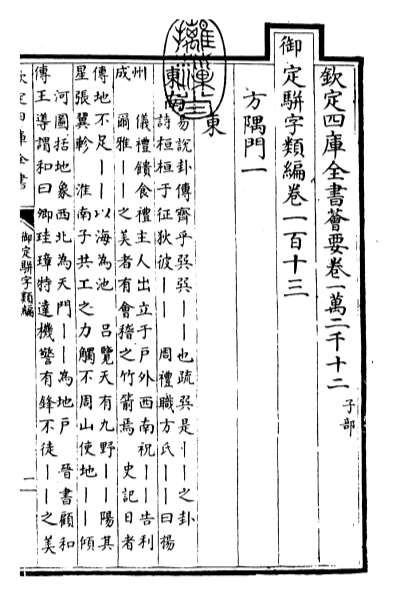 欽定四庫全書薈要卷一萬二千十二 子部
御定駢字類編卷一百十三
方隅門一
東
東南
易說卦傳齊乎巽巽丨丨也疏巽是丨丨之卦
詩桓桓于征狄彼丨丨 周禮職方氏丨丨曰揚
州 儀禮饋食禮主人出立于戶外西南祝丨丨告利
成 爾雅丨丨之美者有會稽之竹箭焉 史記日者
傳地不足丨丨以海為池 呂覽天有九野丨丨陽其
星張翼軫 淮南子共工之力觸不周山使地丨丨傾
河圖括地象西北為天門丨丨為地戶 晉書顧和
傳王導謂和曰卿珪璋特達機警有鋒不徒丨丨之美
欽定四庫全書
御定駢字類編